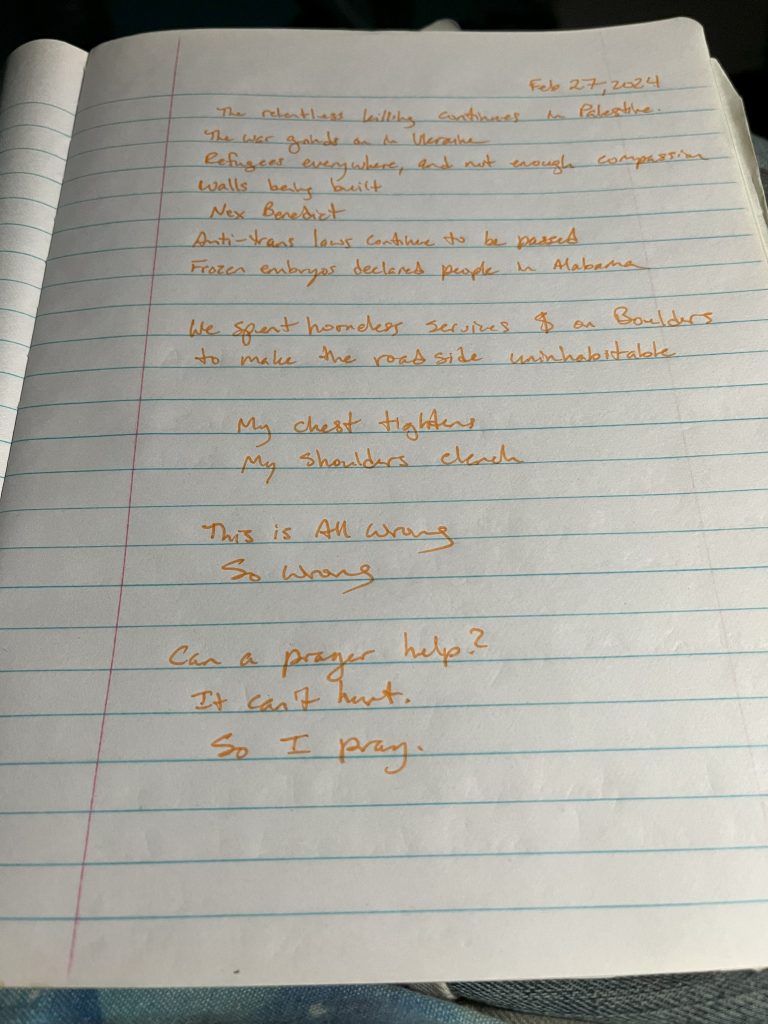 Feb 27, 2024
The relentless killing continues in Palestine.
The war grinds on in Ukraine
Refugees everywhere, and not enough compassion
Walls being built
Nex Benedict
Anti-trans laws continue to be passed
Frozen embryos declared people in Alabama
We spent homeless services $ on Boulders
to make the roadside uninhabitable
My chest tightens
My shoulders clench
This is All Wrong
So Wrong
Can a prayer help?
It can't hurt.
So I pray.